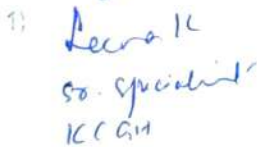 1)
Leena K
Sr. Specialist
KCGH